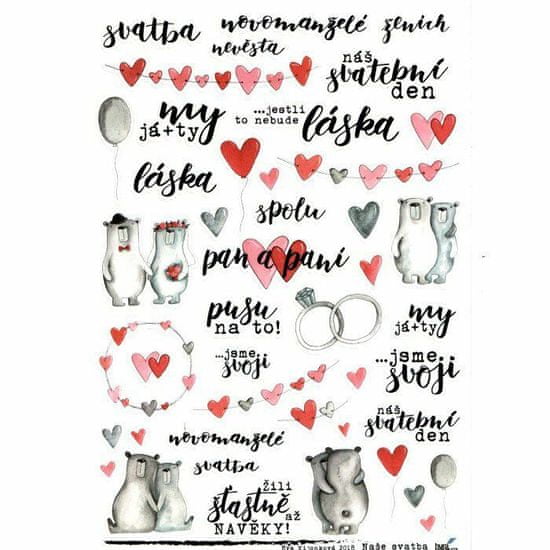 svatba
novomanželé
ženich
nevěsta
náš
svatební
den
my
já+ty
...jestli
to nebude
láska
láska
spolu
pan a paní
pusu
na to!
my
já+ty
...jsme
svoji
...jsme
svoji
náš
svatební
den
novomanželé
svatba
žili
šťastně
až
NAVĚKY!
2016 Naše svatba